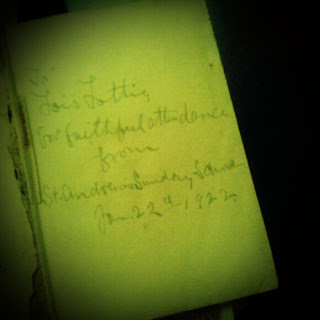 To
Lois Lottie
for faithful attendance
from
St. Andrews Sunday School
Jan. 22nd, 1922.